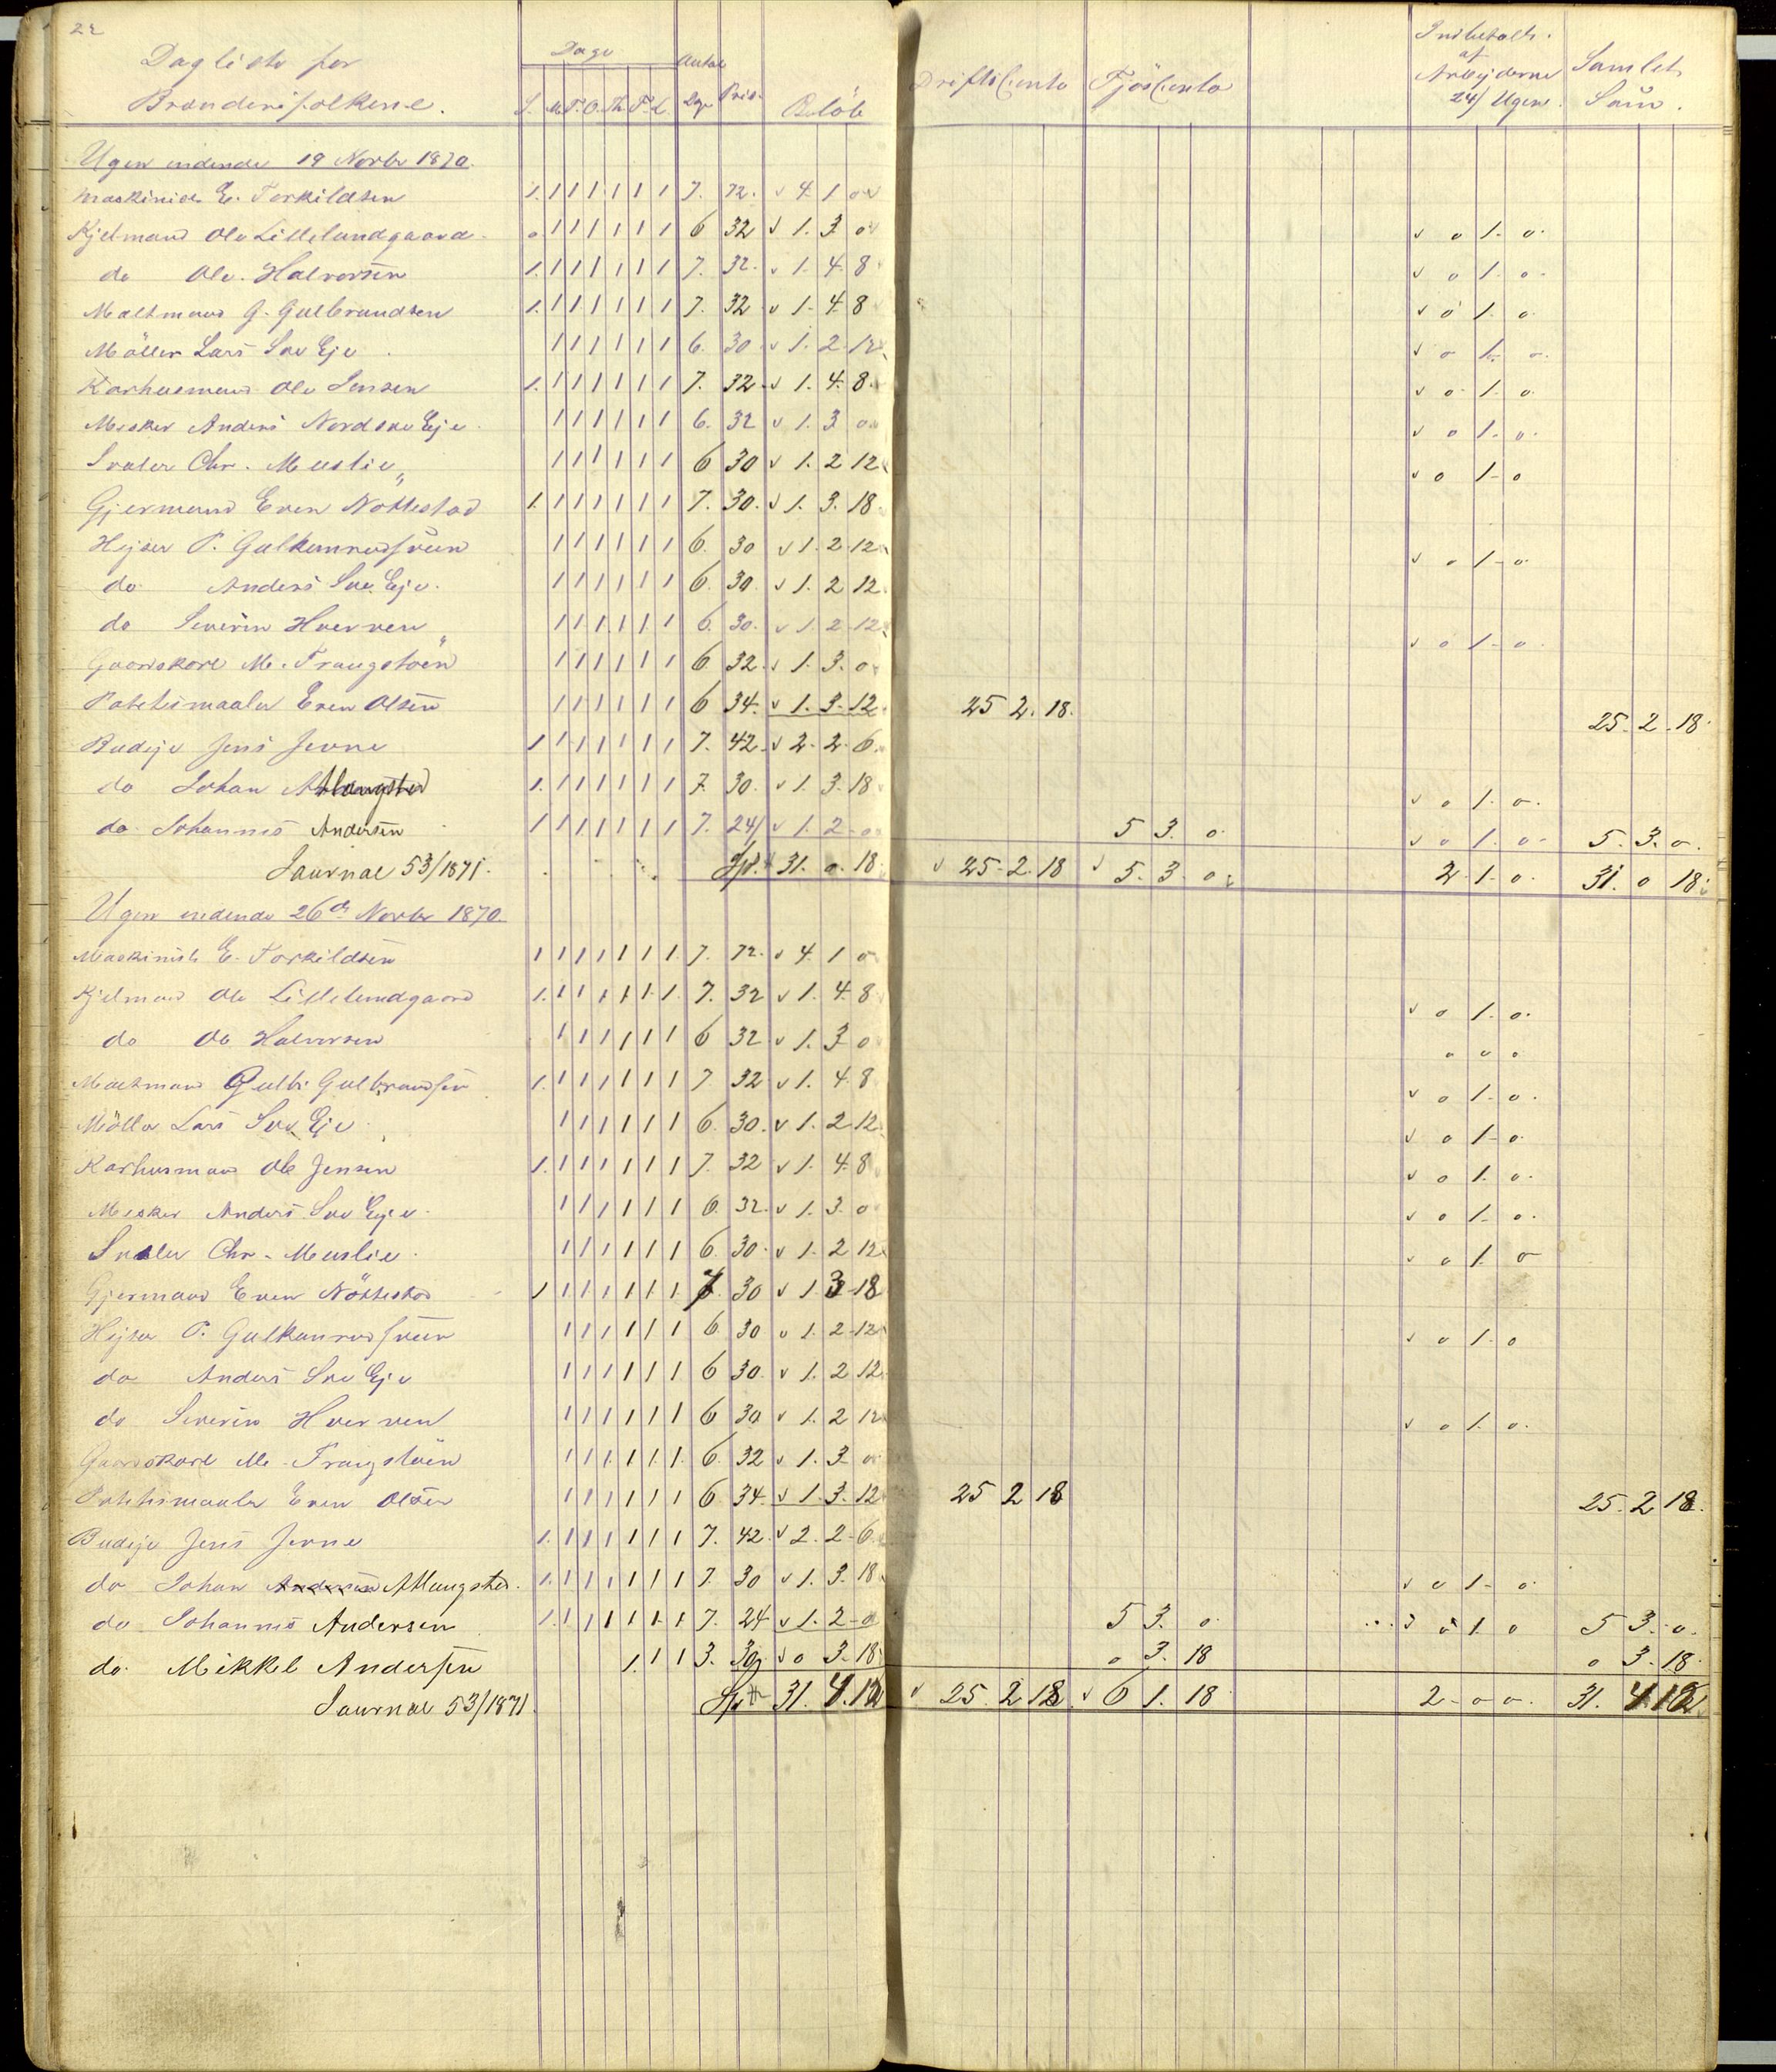 22
Dagliste for Brænderifolkene. Dage Antal Dage Pris. Beløb Driftsconto Fjøsconto Indbetalt af Arbejderne 24/ Ugen. Samlet Sum.
S. M. T. O. Th. F. L.
Ugen endende 19 Novbr 1870.
Maskinist E. Torkildsen 1. 1 1 1 1 1 1 7. 72. v 4. 1 0
Kjelmand Ole Lillelundgaard 0 1 1 1 1 1 1 6 32 v 1. 3. 0 v 0 1. 0.
do Ole Halvorsen 1. 1 1 1 1 1 1 7. 32. v 1. 4. 8 v 0 1. 0.
Maltmand G. Gulbrandsen 1. 1 1 1 1 1 1 7. 32 v 1. 4. 8 v 0 1. 0.
Möller Lars Løv Eje 1 1 1 1 1 1 6. 30 v 1. 2. 12 v 0 1. 0.
Karhusmand Ole Jensen 1. 1 1 1 1 1 1 7. 32 v 1. 4. 8. v 0 1. 0.
Mesker Anders Nordsve Eje 1 1 1 1 1 1 6. 32 v 1. 3 0 v 0 1. 0.
Chr. Muslie 1 1 1 1 1 1 6 30 v 1. 2 12 v 0 1. 0
Gjermand Even Nøttestad 1. 1 1 1 1 1 1 7. 30. v 1. 3. 18.
Hejser P. Gulkunrudsveen 1 1 1 1 1 1 6. 30 v 1. 2 12 v 0 1. 0.
do Anders Sve Eje 1 1 1 1 1 1 6. 30. v 1. 2 12
do Severin Hverven 1 1 1 1 1 1 6. 30. v 1. 2 12 v 0 1. 0.
Gaardskarl M. Frangstøen 1 1 1 1 1 1 6 32 v 1. 3. 0
Potetismaaler Even Olsen 1 1 1 1 1 1 6 34. v 1. 3. 12 25 2. 18. 25. 2. 18.
Budeje Jens Jevne 1 1 1 1 1 1 1 7. 42. v 2. 2. 6
do Johan Alangsted 1. 1 1 1 1 1 1 7. 30. v 1. 3. 18 v 0 1. 0.
do Johannes Andersen 1 1 1 1 1 1 1 7. 24 v 1. 2. 0 5 3. 0. v 0 1. 0. 5. 3. 0.
Journal 53/1871. Spd. 31. 0. 18. v 25. 2. 18 v 5. 3. 0 2. 1. 0. 31. 0 18.
Ugen endende 26de Novbr 1870.
Maskinist E. Torkildsen 1 1 1 1 1 1 1 7. 72. v 4. 1 0
Kjelmand Ole Lillelundgaard 1. 1 1 1 1 1 1 7. 32 v 1. 4. 8 v 0 1. 0.
do Ole Halvorsen 1 1 1 1 1 1 6 32 v 1. 3. 0 0 0 0
Maltmand Gulb. Gulbrandsen 1. 1 1 1 1 1 1 7 32 v 1. 4. 8 v 0 1. 0.
Möller Lars Sve Eje 1 1 1 1 1 1 6. 30. v 1. 2 12 v 0 1. 0.
Karhusmand Ole Jensen 1. 1 1 1 1 1 1 7. 32 v 1. 4. 8 v 0 1. 0.
Mesker Anders Sve Eje 1 1 1 1 1 1 6. 32. v 1. 3. 0 v 0 1. 0.
Chr. Muslie 1 1 1 1 1 1 6. 30. v 1. 2 12 v 0 1. 0
Gjermand Even Nöttestad 1 1 1 1 1 1 1 7. 30 v 1 3 18
Hejser P. Gulkunrudsveen 1 1 1 1 1 1 6 30 v 1. 2 12 v 0 1. 0
do Anders Sve Eje 1 1 1 1 1 1 6 30. v 1. 2 12
do Severin Hverven 1 1 1 1 1 1 6 30 v 1. 2 12 v 0 1. 0.
Gaardskarl M. Frangstøen 1 1 1 1 1 1 6. 32 v 1. 3. 0
Potetismaaler Even Olsen 1 1 1 1 1 1 6 34. v 1. 3. 12 25 2 18 25. 2 18.
Budeje Jens Jevne 1. 1 1 1 1 1 1 7. 42. v 2. 2. 6
do Johan Andersen Allangsted. 1. 1 1 1 1 1 1 7. 30 v 1. 3. 18 v 0 1. 0
do Johannes Andersen 1. 1 1 1 1 1 1 7. 24 v 1. 2. 0 5 3. 0 0 1. 0 5 3. 0.
do. Mikkel Andersen 1. 1 1 3. 30 v 0 3. 18 0 3. 18 0 3. 18.
Journal 53/1871. Spd 31. 4. 12 v 25. 2 18 v 6 1. 18 2. 0 0. 31. 4. 12